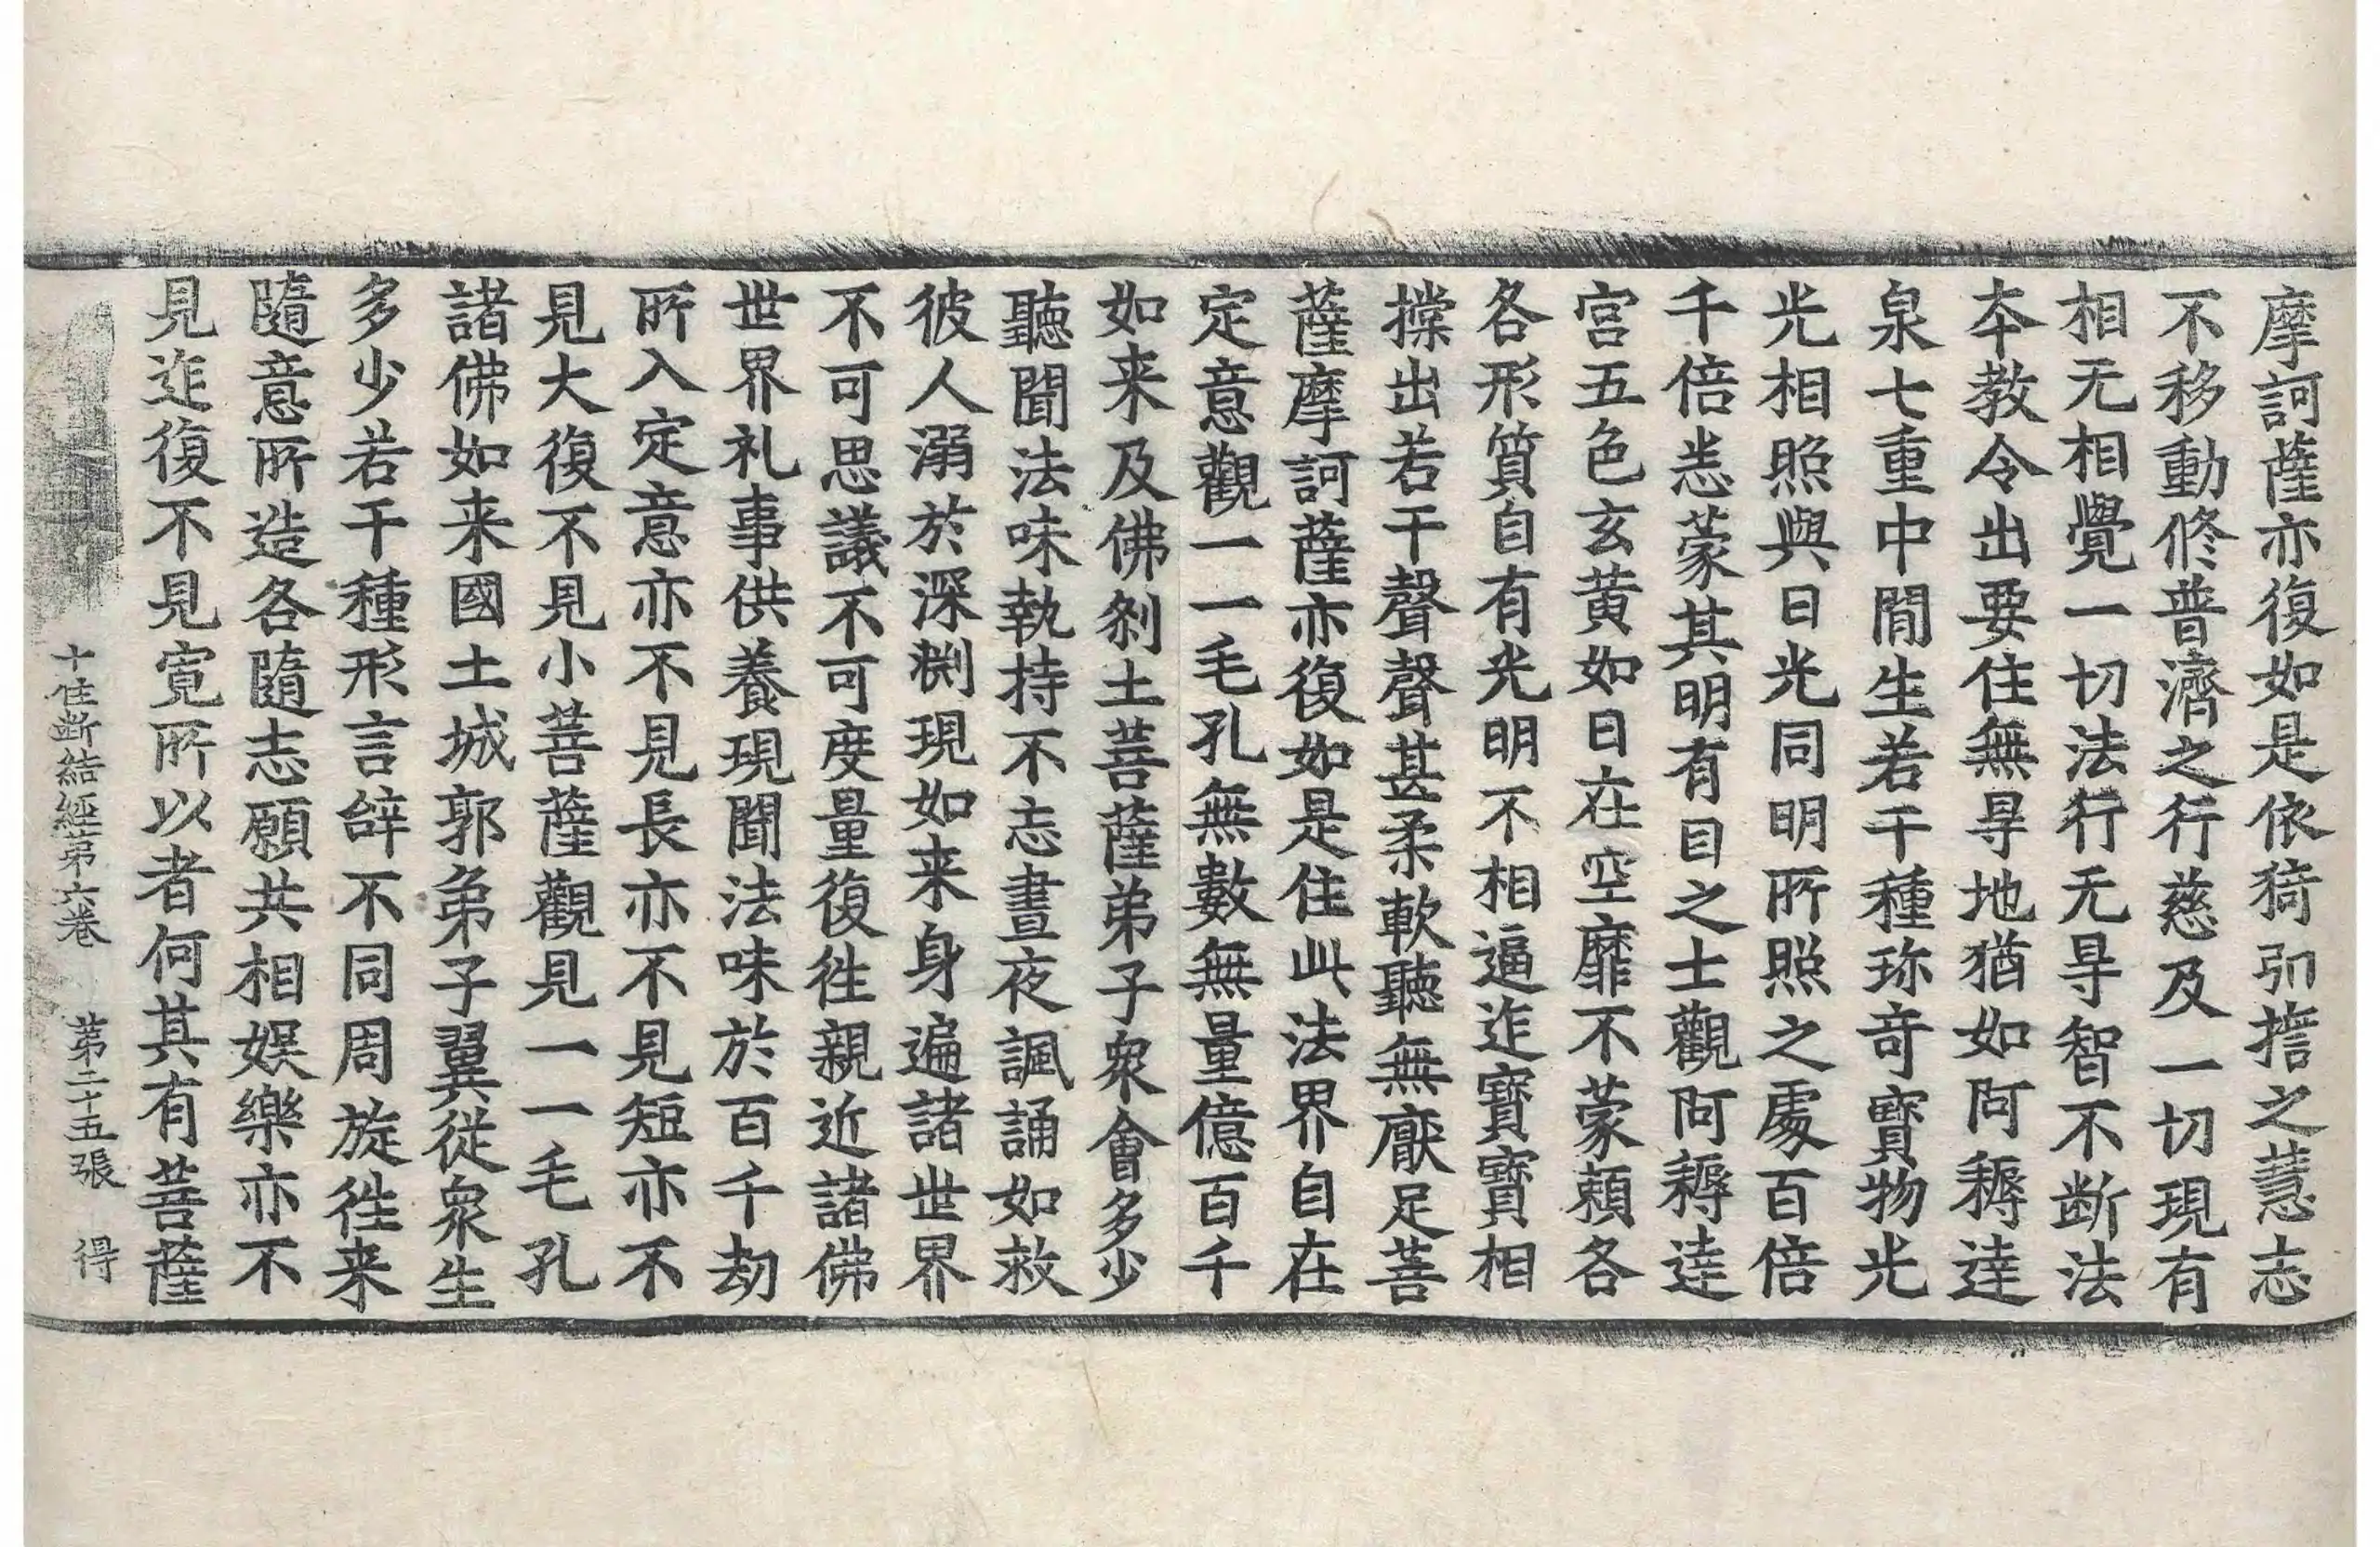 摩訶薩亦復如是依猗弘擔之慧志
不移動修普濟之行慈及一切現有
相无相覺一切法行无㝵智不斷法
本教令出要住無㝵地猶如阿耨達
泉七重中間生若干種珎奇寶物光
光相照與日光同明所照之處百倍
千倍恙蒙其明有目之士觀阿耨達
宮五色玄黃如日在空靡不蒙賴各
各形質自有光明不相逼迮寶寶相
摚出若干聲聲甚柔軟聽無厭足菩
薩摩訶薩亦復如是住此法界自在
定意觀一一毛孔無數無量億百千
如来及佛刹土菩薩弟子衆會多少
聽聞法味執持不忘晝夜諷誦如救
彼人溺於深淵現如来身遍諸世界
不可思議不可度量復徃親近諸佛
世界礼事供養現聞法味於百千劫
所入定意亦不見長亦不見短亦不
見大復不見小菩薩觀見一一毛孔
諸佛如来國土城郭弟子翼從衆生
多少若干種形言辝不同周旋徃来
隨意所造各隨志願共相娛樂亦不
見迮復不見寛所以者何其有菩薩
十住断結經第六巻 第二十五張 得